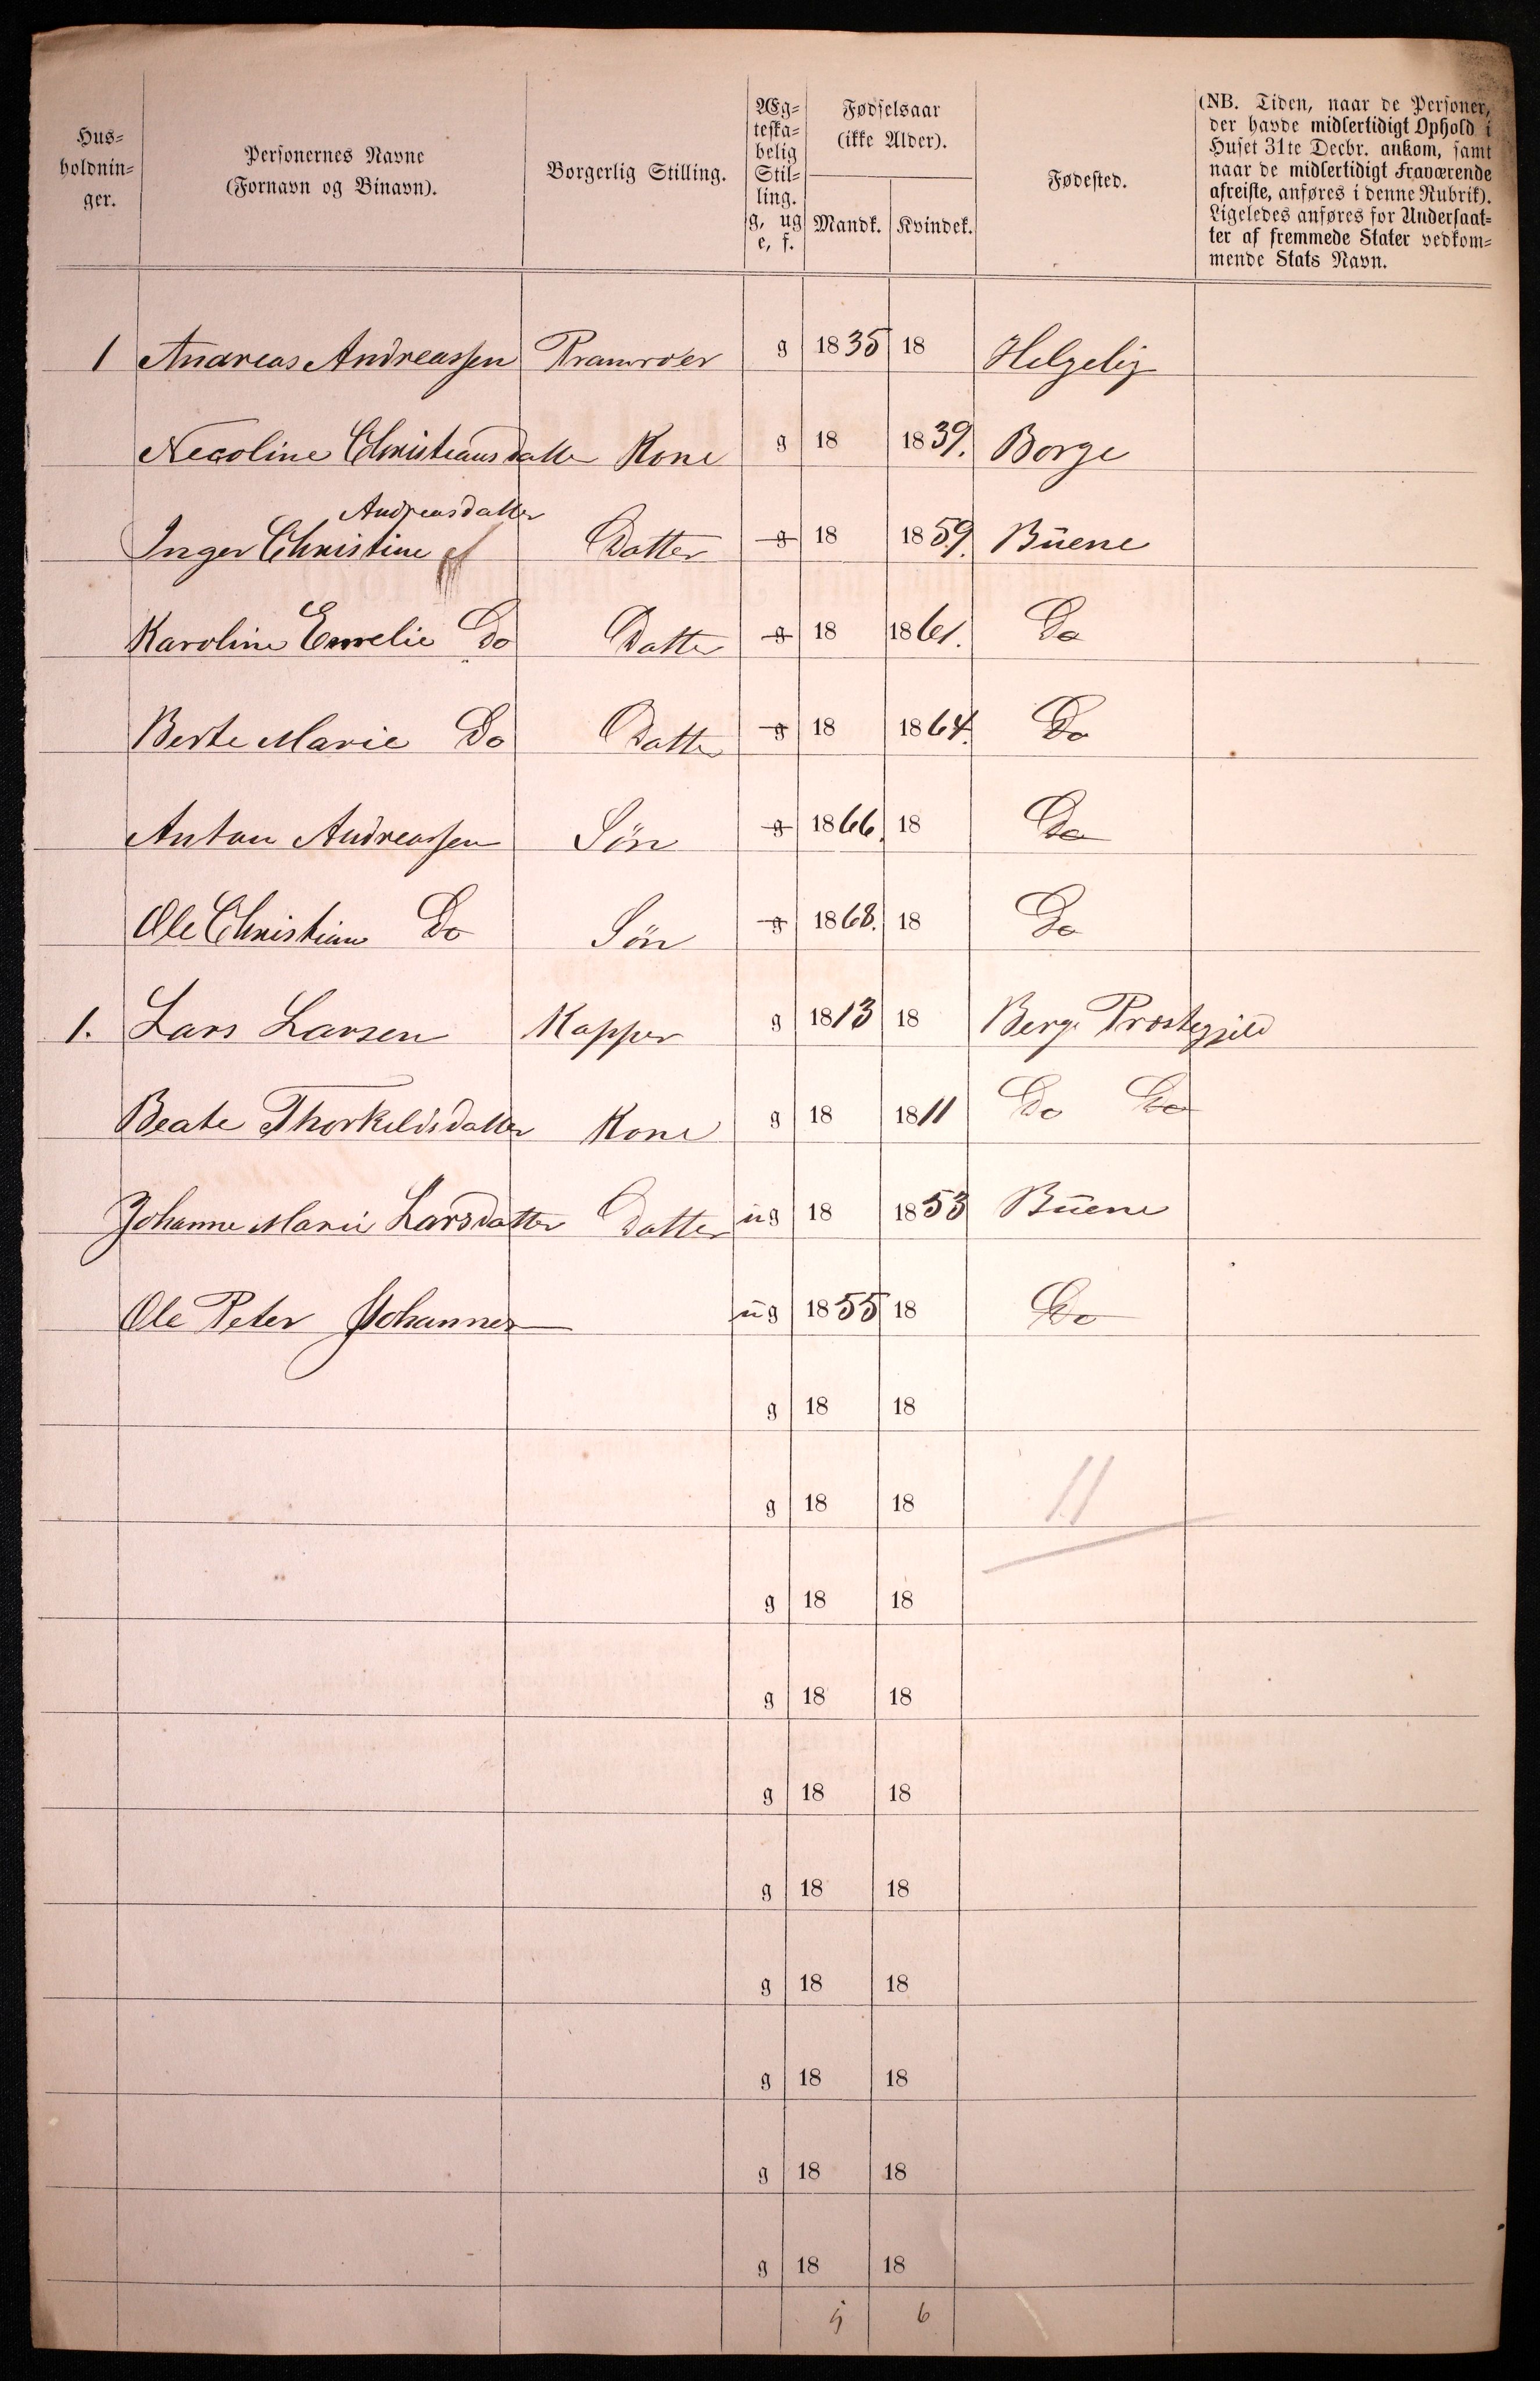 Hus-
holdnin-
ger.
Personernes Navne
(Fornavn og Binavn).
Borgerlig Stilling.
Æg-
teska-
belig
Stil-
ling.
g, ug
e, f.
Fødselsaar
(ikke Alder).
Mandk. Kvindek.
Fødested.
(NB. Tiden, naar de Personer,
der havde midlertidigt Ophold i
Huset 31te Decbr. ankom, samt
naar de midlertidigt Fraværende
afreiste, anføres i denne Rubrik).
Ligeledes anføres for Undersaat-
ter af fremmede Stater vedkom-
mende Stats Navn.
1 Andreas Andreassen Pramroer g 1835 18 Helgelig
Necoline Christiansdatter Kone g 18 1839. Borge
Andreasdatter
Inger Christine Datter g 18 1859. Büene
Karoline Emelie Do Datter g 18 1861. Do
Berte Marie Do Datter g 18 1864. Do
Anton Andreassen Sön g 1866. 18 Do
Ole Christian Do Sön g 1868. 18 Do
1. Lars Larsen Kapper g 1813 18 Berg Præstegjeld
Beate Thorkeldsdatter Kone g 18 1811 Do Do
Johanne Marie Larsdatter Datter üg 18 1853 Büene
Ole Peter Johannes üg 1855 18 Do
g 18 18
g 18 18 11
g 18 18
g 18 18
g 18 18
g 18 18
g 18 18
g 18 18
g 18 18
g 18 18
5 6